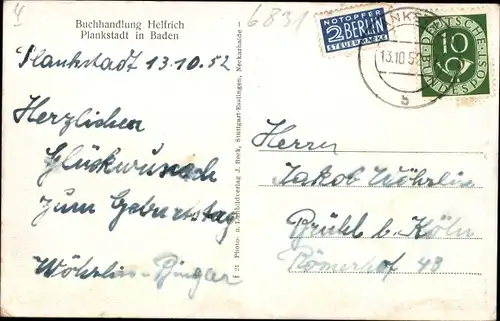 4
6831
Buchhandlung Helfrich
Plankstadt in Baden
Plankstadt 13.10.52
Herzlichen
Glückwunsch
zum Geburtstag
Wöhrlin-Binger
f 21 Photo- u. J. Beck, Stuttgart-Esslingen, Neckarhalde
NOTOPFER
2 BERLIN
STEUERMARKE
13.10.5
b
DEUTSCHE
BUNDESPOST
10
Herrn
Jakob Wöhrlin
Brühl b. Köln
Römerhof 43